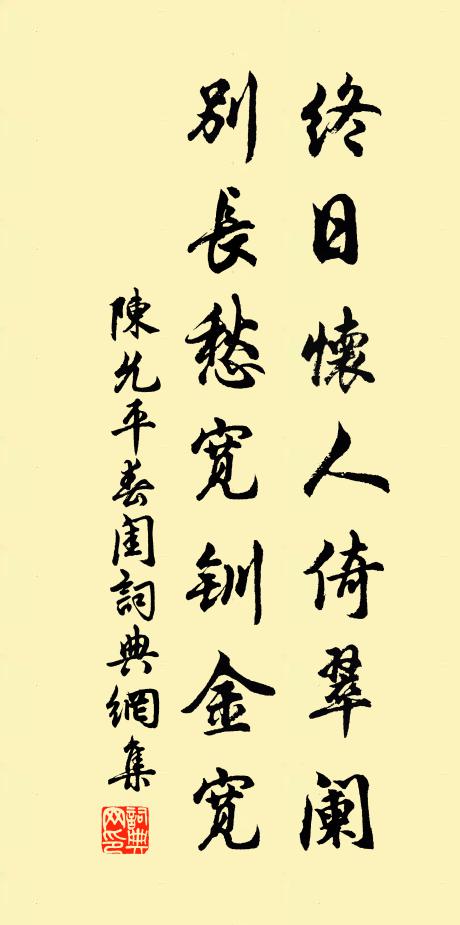 終日懷人倚翠闌
別長愁寬釧金寬
陳允平春閨詞典網集
詞典网印